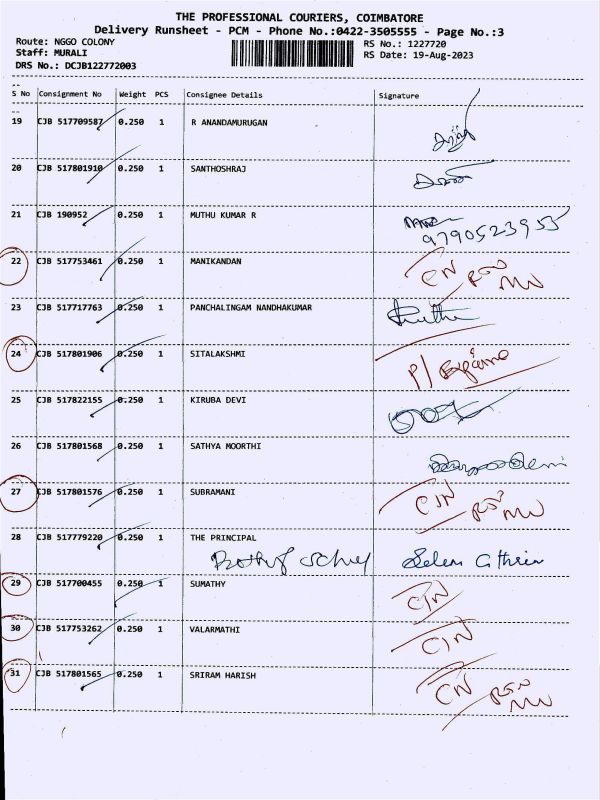 THE PROFESSIONAL COURIERS, COIMBATORE
Delivery Runsheet - PCM - Phone No.:0422-3505555 - Page No.:3
Route: NGGO COLONY
RS No.: 1227720
Staff: MURALI
RS Date: 19-Aug-2023
DRS No.: DCJB122772003
S No Consignment No Weight PCS Consignee Details Signature
19 CJB 517709587 0.250 1 R ANANDAMURUGAN
20 CJB 517801910 0.250 1 SANTHOSHRAJ
21 CJB 190952 0.250 1 MUTHU KUMAR R
9790523955
22 CJB 517753461 0.250 1 MANIKANDAN
23 CJB 517717763 0.250 1 PANCHALINGAM NANDHAKUMAR
24 CJB 517801906 0.250 1 SITALAKSHMI
25 CJB 517822155 0.250 1 KIRUBA DEVI
26 CJB 517801568 0.250 1 SATHYA MOORTHI
27 CJB 517801576 0.250 1 SUBRAMANI
28 CJB 517779220 0.250 1 THE PRINCIPAL
29 CJB 517700455 0.250 1 SUMATHY
30 CJB 517753262 0.250 1 VALARMATHI
31 CJB 517801565 0.250 1 SRIRAM HARISH